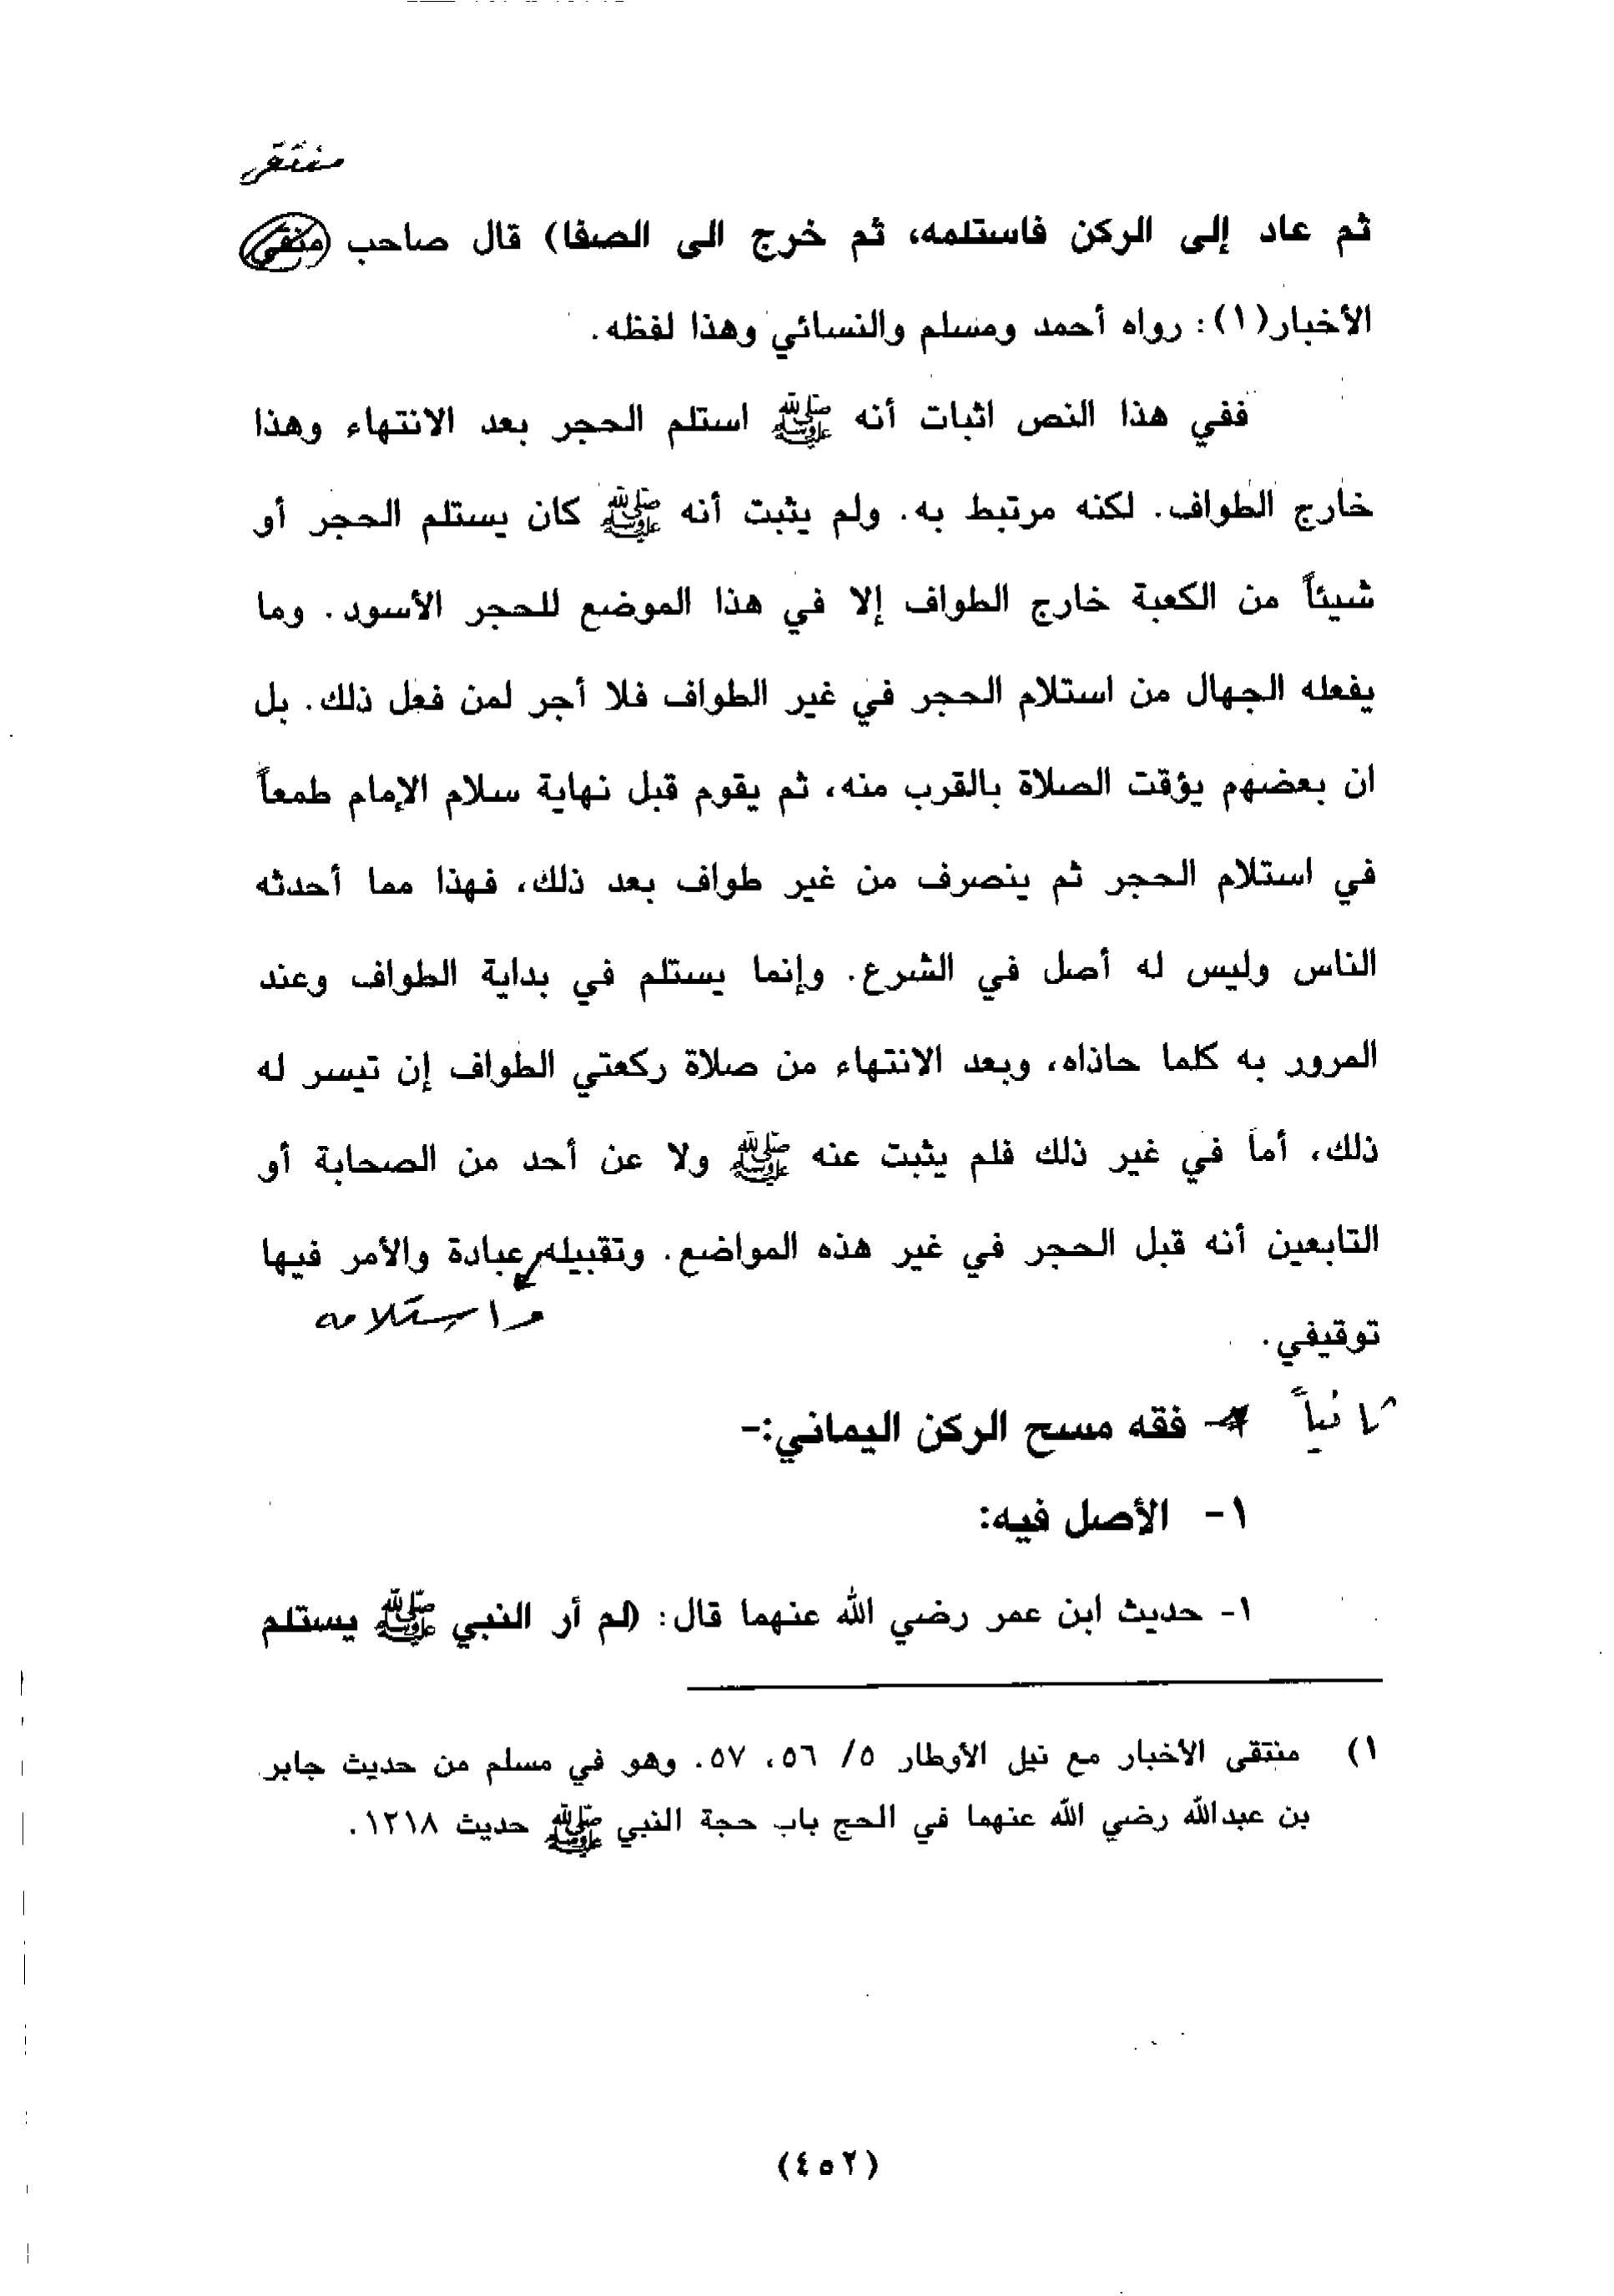 منتقى
ثم عاد إلى الركن فاستلمه، ثم خرج الى الصفا) قال صاحب منقى
الأخبار(١): رواه أحمد ومسلم والنسائي وهذا لفظه.
ففي هذا النص اثبات أنه ﷺ استلم الحجر بعد الانتهاء وهذا
خارج الطواف. لكنه مرتبط به. ولم يثبت أنه ﷺ كان يستلم الحجر أو
شيئاً من الكعبة خارج الطواف إلا في هذا الموضع للحجر الأسود. وما
يفعله الجهال من استلام الحجر في غير الطواف فلا أجر لمن فعل ذلك. بل
ان بعضهم يؤقت الصلاة بالقرب منه، ثم يقوم قبل نهاية سلام الإمام طمعاً
في استلام الحجر ثم ينصرف من غير طواف بعد ذلك، فهذا مما أحدثه
الناس وليس له أصل في الشرع. وإنما يستلم في بداية الطواف وعند
المرور به كلما حاذاه، وبعد الانتهاء من صلاة ركعتي الطواف إن تيسر له
ذلك، أما في غير ذلك فلم يثبت عنه ﷺ ولا عن أحد من الصحابة أو
التابعين أنه قبل الحجر في غير هذه المواضع. وتقبيله عبادة والأمر فيها
واستلامه
توقيفي.
ثانياً - فقه مسح الركن اليماني:-
١- الأصل فيه:
١- حديث ابن عمر رضي الله عنهما قال: (لم أر النبي ﷺ يستلم
١) منتقى الأخبار مع نيل الأوطار ٥/ ٥٦، ٥٧. وهو في مسلم من حديث جابر
بن عبدالله رضي الله عنهما في الحج باب حجة النبي ﷺ حديث ١٢١٨.
(٤٥٢)